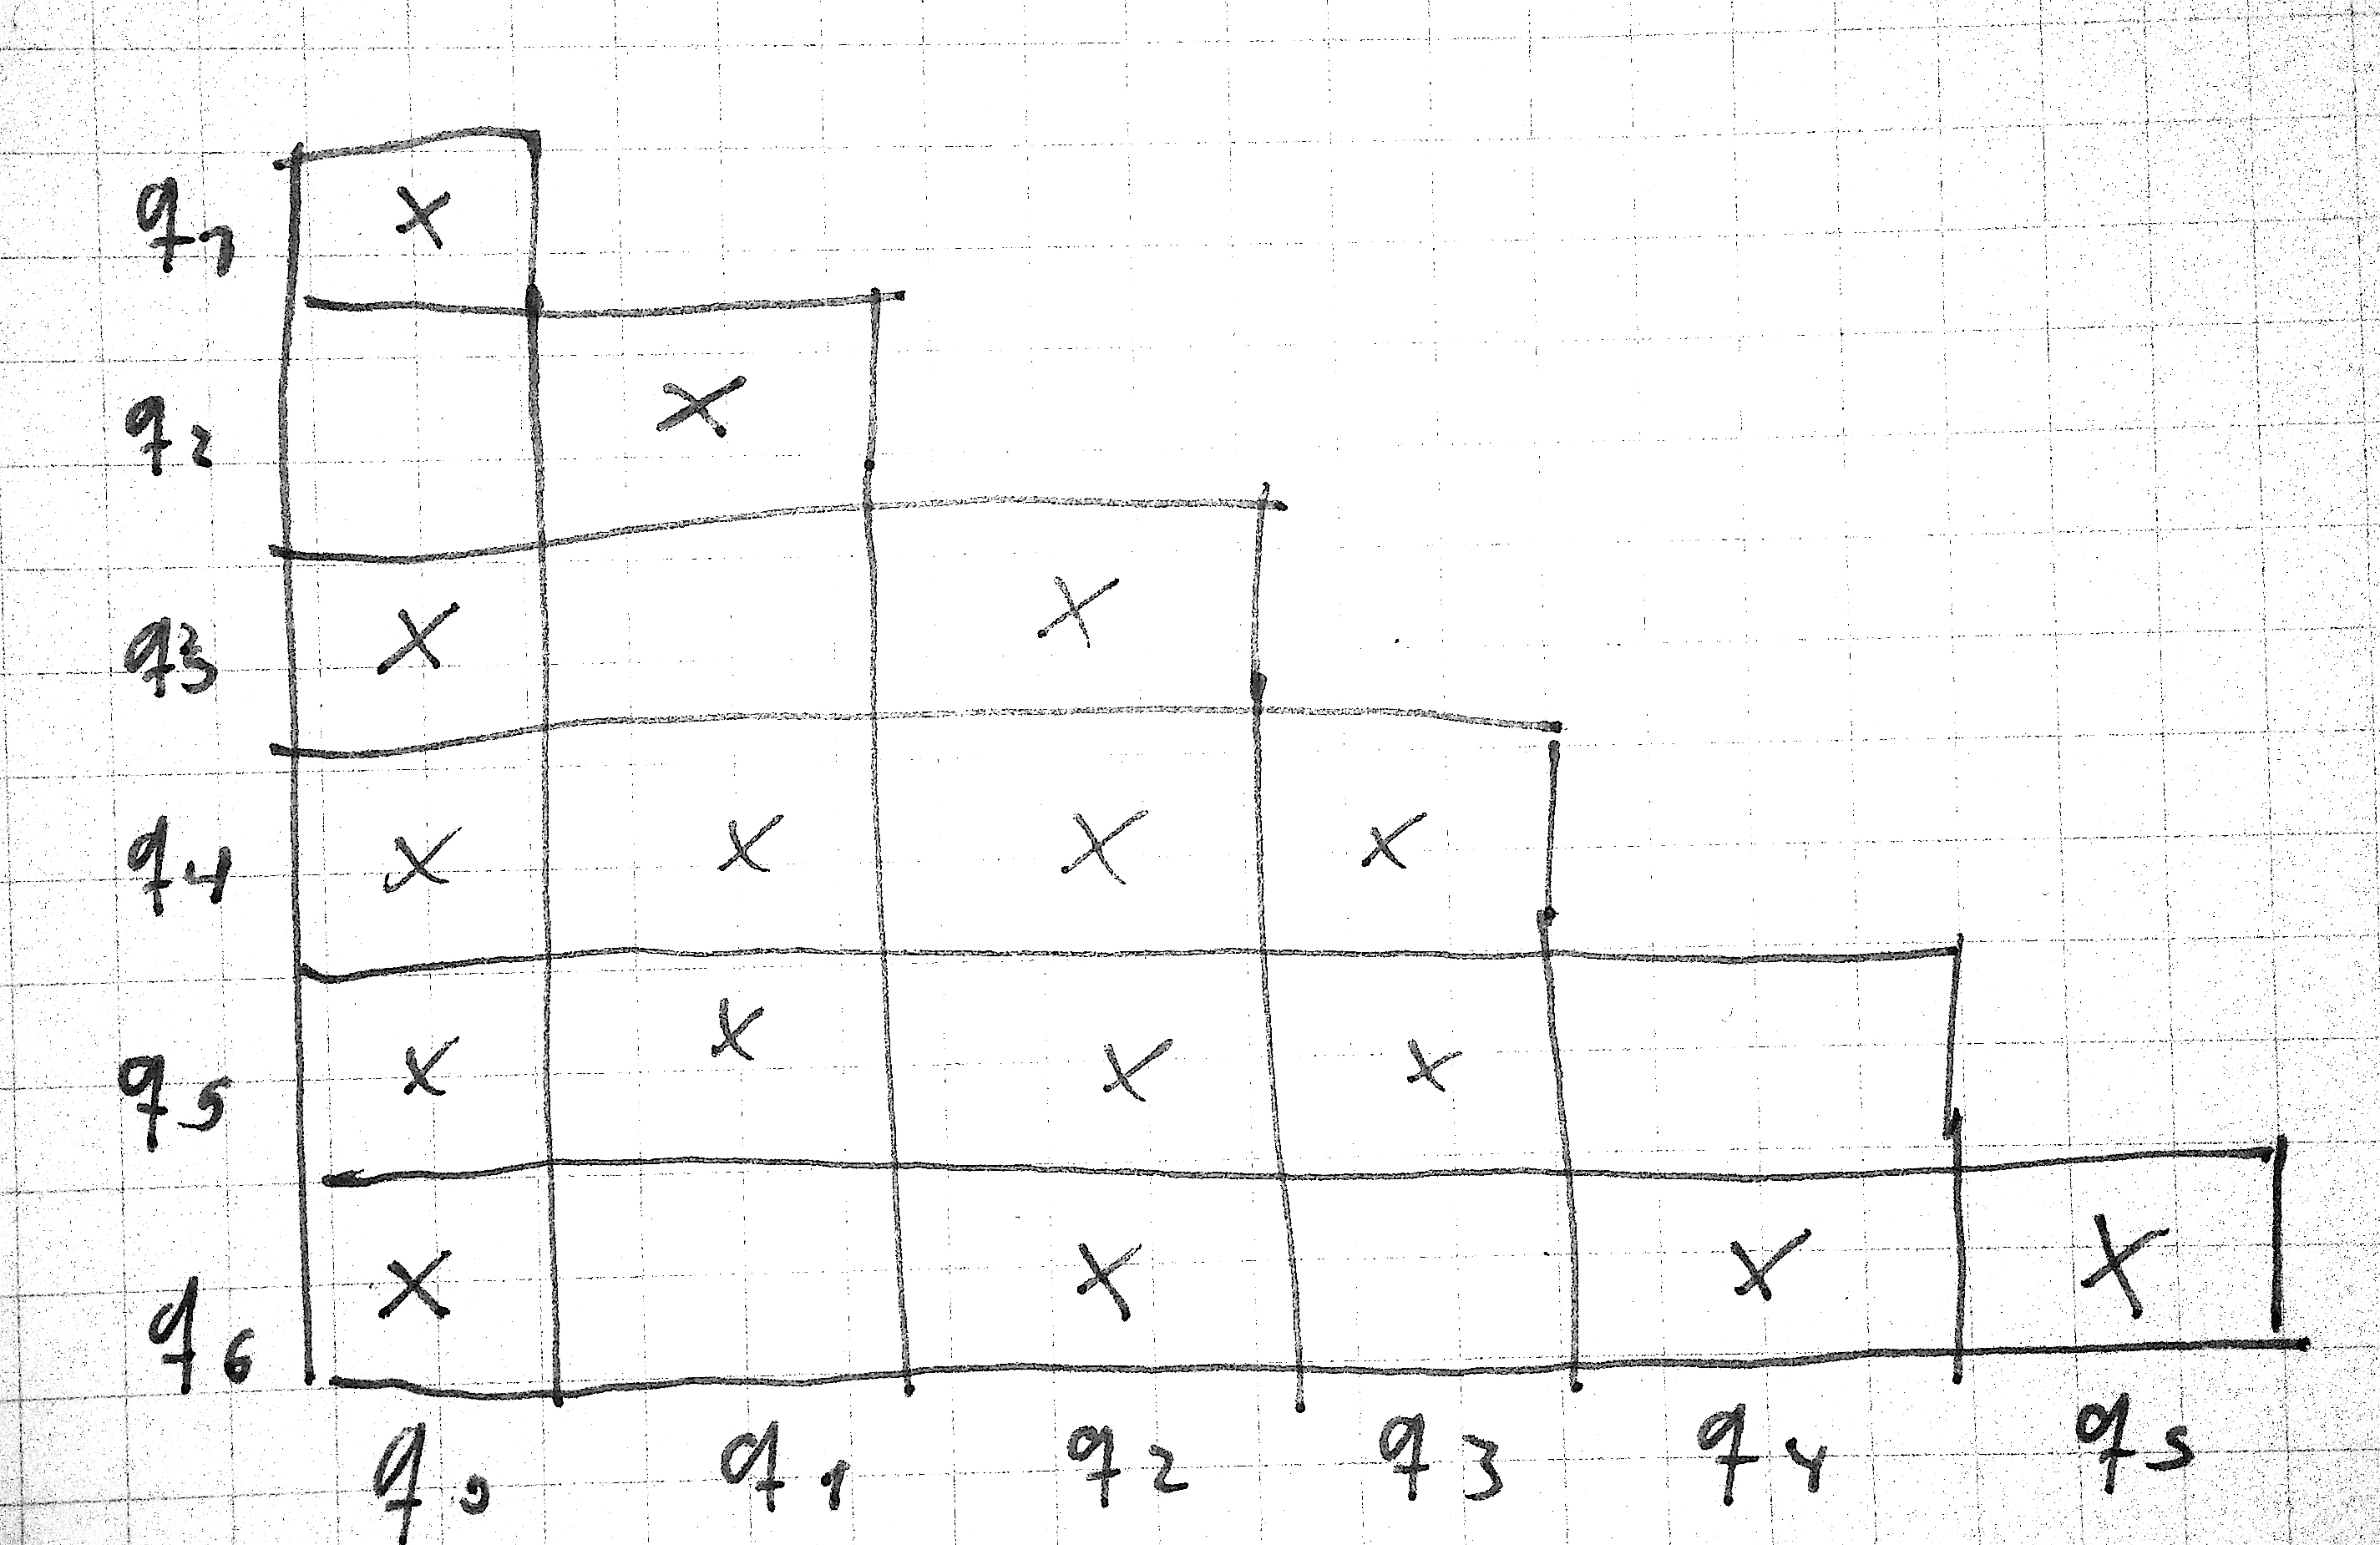 q1 X
q2 X
q3 X X
q4 X X X X
q5 X X X X
q6 X X X X
q0 q1 q2 q3 q4 q5